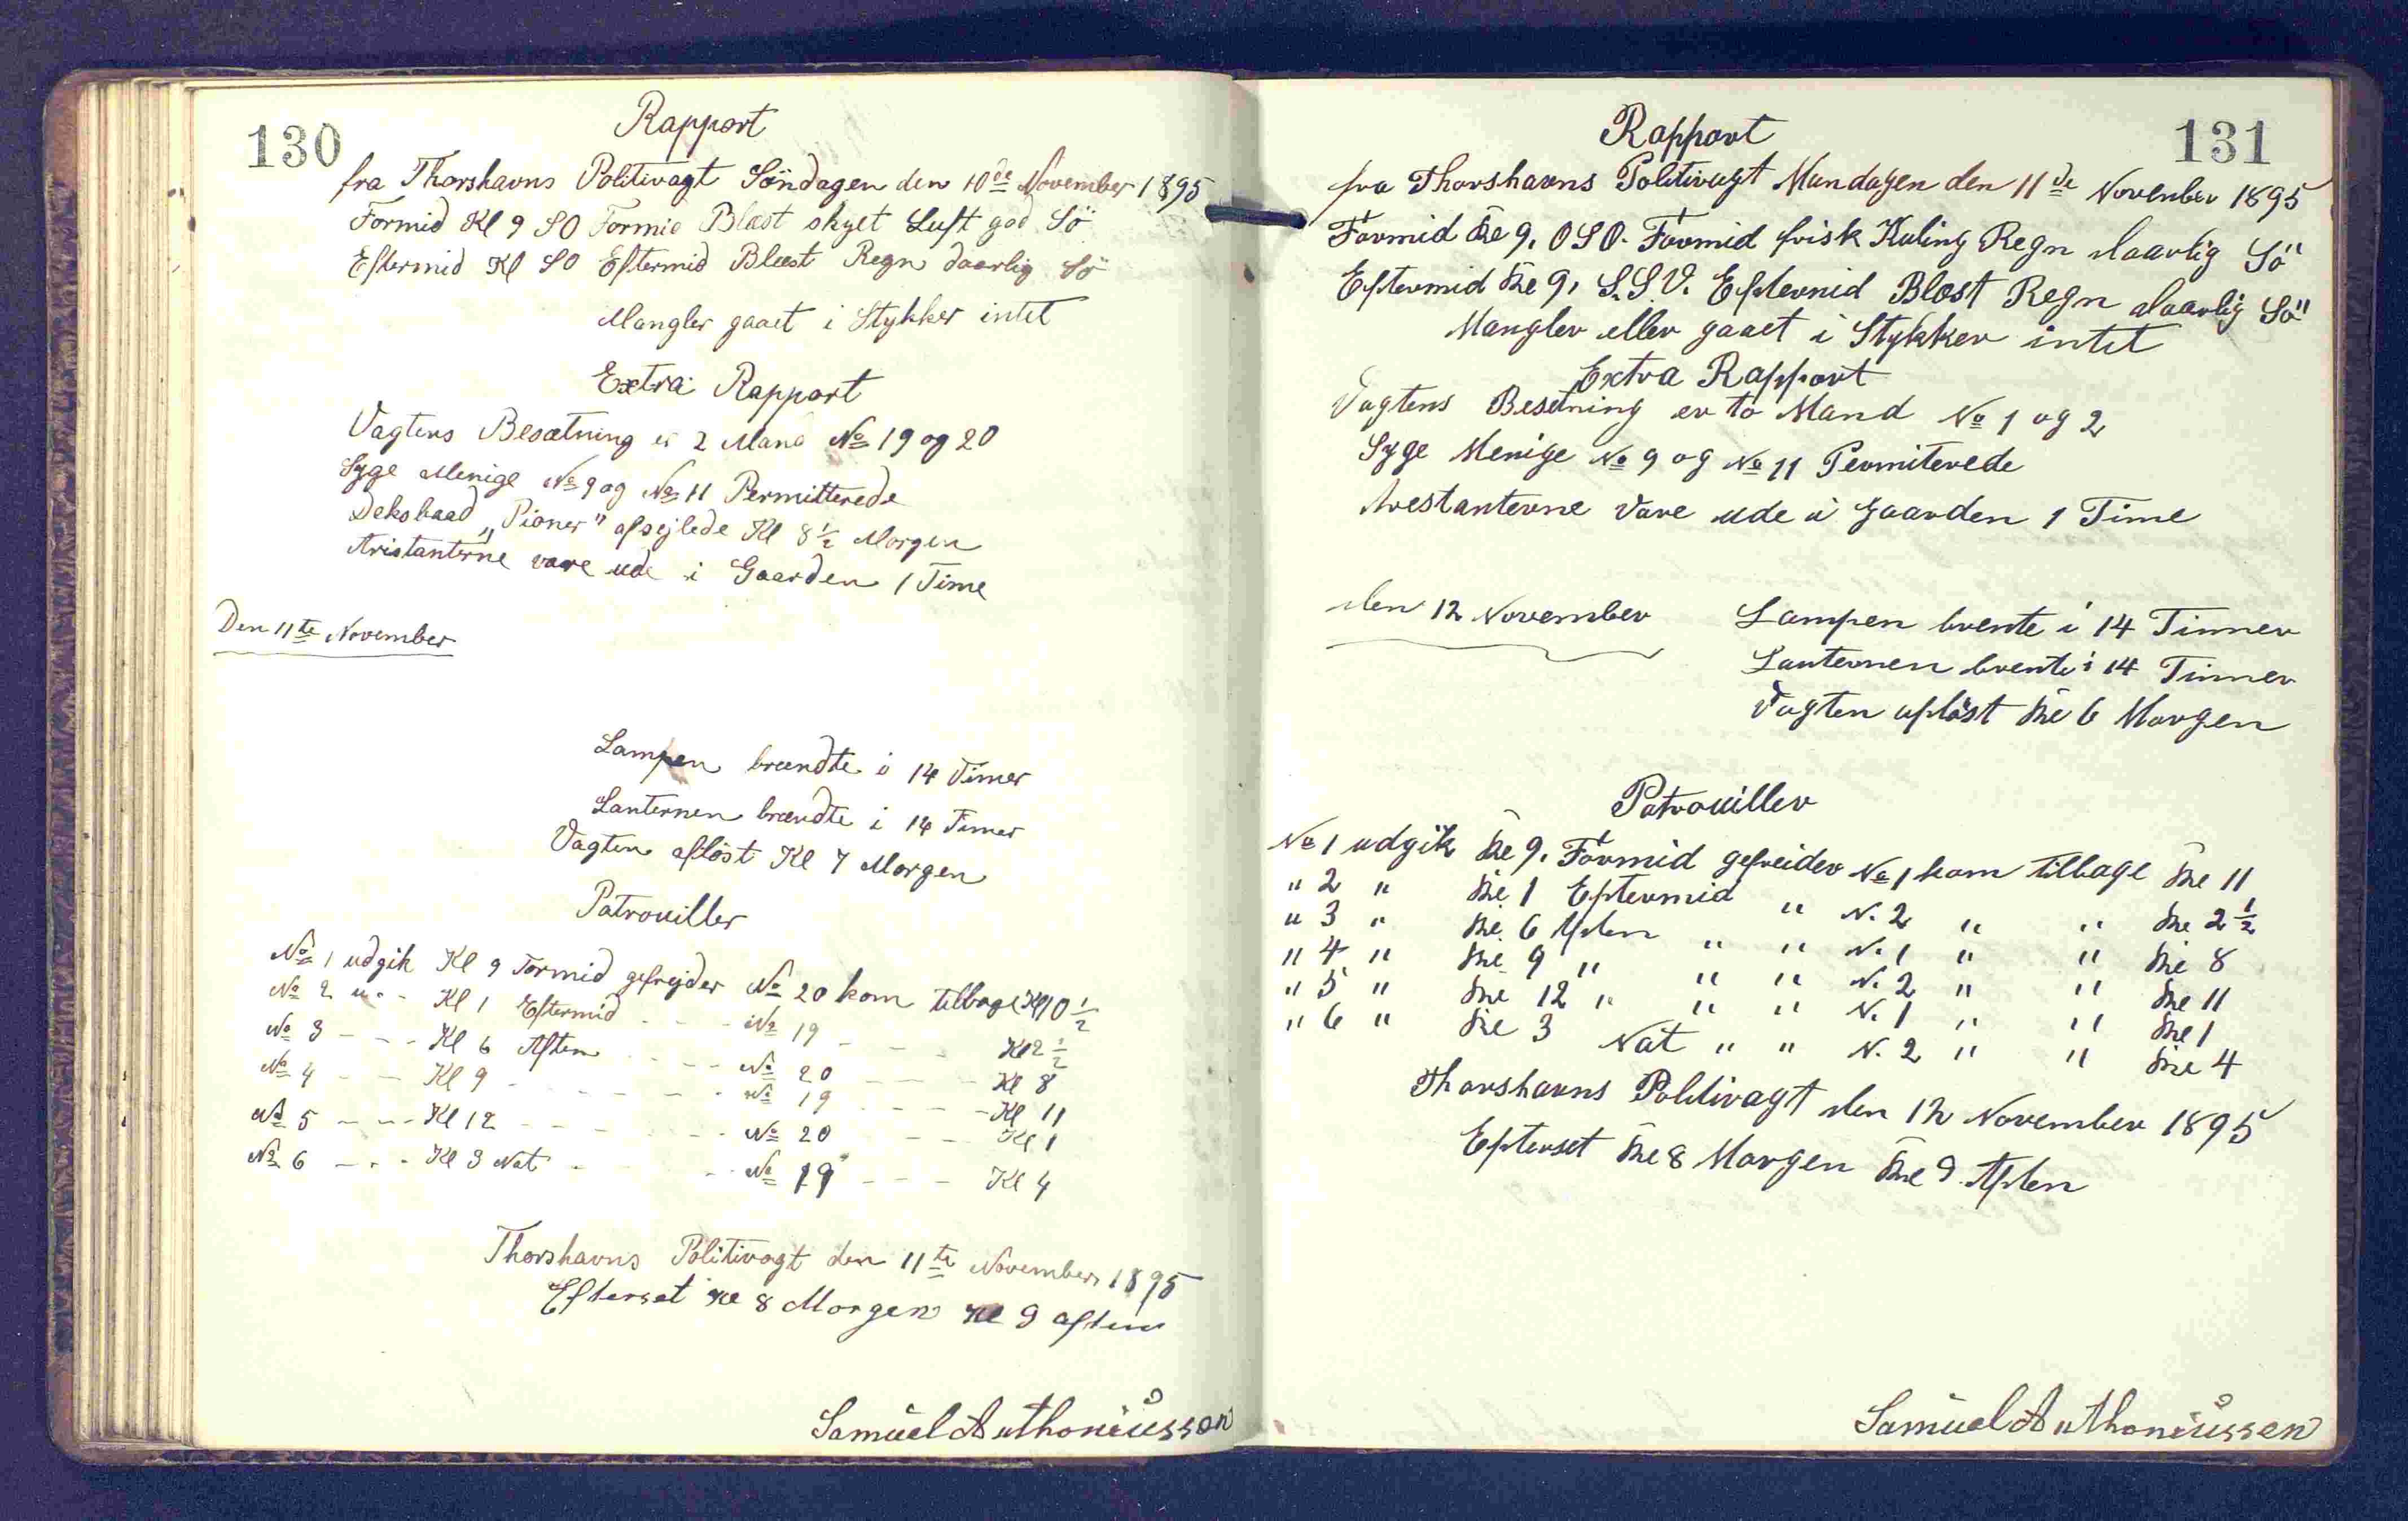 130
Rapport
fra Thorshavns Politivagt Söndagen den 10de November 1895
Formid Kl 9 SO Formid Blæst skyet Luft god Sö
Eftermid Kl SO Eftermid Blæst Regn daarlig Sö
Mangler gaaet i Stykker intet
Extra Rapport
Vagtens Besætning er 2 Mand No 19 og 20
Syge Menige No 9 og No 11 Permitterede
Deksbaad „Pioner" afsejlede Kl 8 1/2 Morgen
Aristanterne vare ude i Gaarden 1 Time
Den 11te November
Lampen brændte i 14 Timer
Lanternen brændte i 14 Timer
Vagten aflöst Kl 7 Morgen
Patrouiller
No 1 udgik Kl 9 Formid gefrejder No 20 kom tilbage Kl 10 1/2
No 2 " - - Kl 1 Eftermid - - - No 19 - - - Kl 2 1/2
No 3 - - - Kl 6 Aften - - - - No 20 - - - Kl 8
No 4 - - Kl 9 - - - - - No 19 - - - - Kl 11
No 5 - - - Kl 12 - - - - - No 20 - - Kl 1
No 6 - - - Kl 3 Nat - - - No 19 - - - Kl 4
Thorshavns Politivagt den 11te November 1895
Efterset Kl 8 Morgen Kl 9 aften
Samuel Anthoniussen
131
Rapport
fra Thorshavns Politivagt Mandagen den 11de November 1895
Formid Kle 9. OSO. Formid frisk Kuling Regn daarlig Sö
Eftermid Kle 9. S.S.V. Eftermid Blæst Regn daarlig Sö
Mangler eller gaaet i Stykker intet
Extra Rapport
Vagtens Besetning er to Mand No 1 og 2
Syge Menige No 9 og No 11 Permiterede
Arestanterne Vare ude i Gaarden 1 Time
den 12 November
Lampen brente i 14 Timmer
Lanternen brente i 14 Timmer
Vagten aflöst Kle 6 Morgen
Patrouiller
No 1 udgik Kle 9. Formid gefreider No 1 kom tilbage Kle 11
" 2 " Kle 1 Eftermid " N. 2 " " Kle 2 1/2
" 3 " Kle 6 Aften " " N. 1 " " Kle 8
" 4 " Kle 9 " " " N. 2 " " Kle 11
" 5 " Kle 12 " " " N. 1 " " Kle 1
" 6 " Kle 3 Nat " " N. 2 " " Kle 4
Thorshavns Politivagt den 12 November 1895
Efterset Kle 8 Morgen Kle 9 Aften
Samuel Anthoniussen